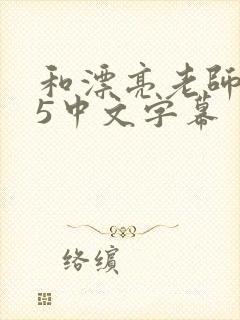 和漂亮老師
5中文字幕
络缤